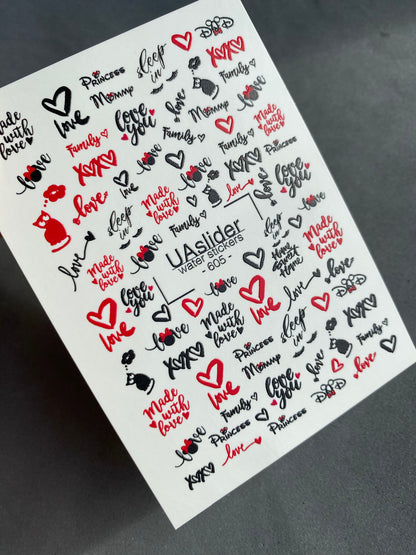 DAD
XOXO
Family
sleep
in
Princess
Mommy
love
Made
with
love
love
love
you
Mommy
love
Made
with
love
Family
Family
love
XOXO
love
XOXO
Princess
love
you
love
love
sleep
in
Made
with
love
love
Family
UAslider
water stickers
- 605 -
love
Home
Sweet
Home
love
love
Made
with
love
love
you
love
love
DAD
love
Made
with
love
sleep
in
XOXO
XOXO
Princess
Mommy
love
Family
love
love
love
you
Made
with
love
Family
DAD
Princess
Princess
love
love
XOXO